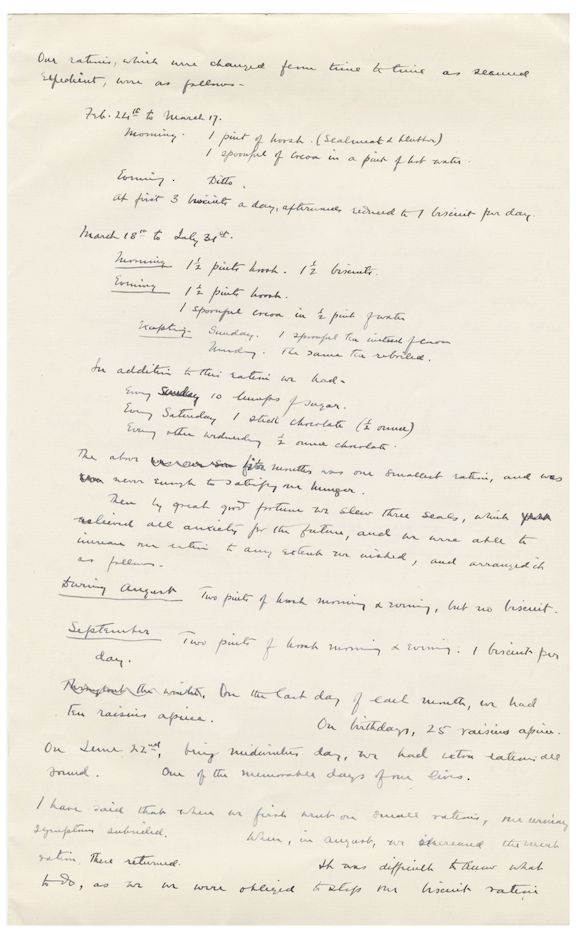 Our rations, which were changed from time to time as seemed
expedient, were as follows -
Feb. 24th to March 17.
Morning. 1 pint of hoosh. (Sealmeat & blubber)
1 spoonful of cocoa in a pint of hot water.
Evening. Ditto.
At first 3 biscuits a day, afterwards reduced to 1 biscuit per day.
March 18th to July 31st.
Morning 1½ pints hoosh. 1½ biscuits.
Evening 1½ pints hoosh.
1 spoonful cocoa in ½ pint of water
Excepting Sunday. 1 spoonful tea instead of cocoa
Monday. The same tea reboiled.
In addition to this ration we had -
Every Sunday 10 lumps of sugar.
Every Saturday 1 stick chocolate (½ ounce)
Every other Wednesday ½ ounce chocolate.
The above months was our smallest ration, and was
never enough to satisfy our hunger.
Then by great good fortune we slew three seals, which
relieved all anxiety for the future, and we were able to
increase our ration to any extent we wished, and arranged it
as follows.
During August Two pints of hoosh morning & evening, but no biscuit.
September Two pints of hoosh morning & evening. 1 biscuit per
day.
Throughout the winter, On the last day of each month, we had
ten raisins apiece. On birthdays, 25 raisins apiece.
On June 22nd, being midwinter day, we had extra rations all
round. One of the memorable days of our lives.
I have said that when we first went on small rations, our urinary
symptoms subsided. When, in August, we increased the meat
ration, these returned. It was difficult to know what
to do, as we we were obliged to stop our biscuit ration